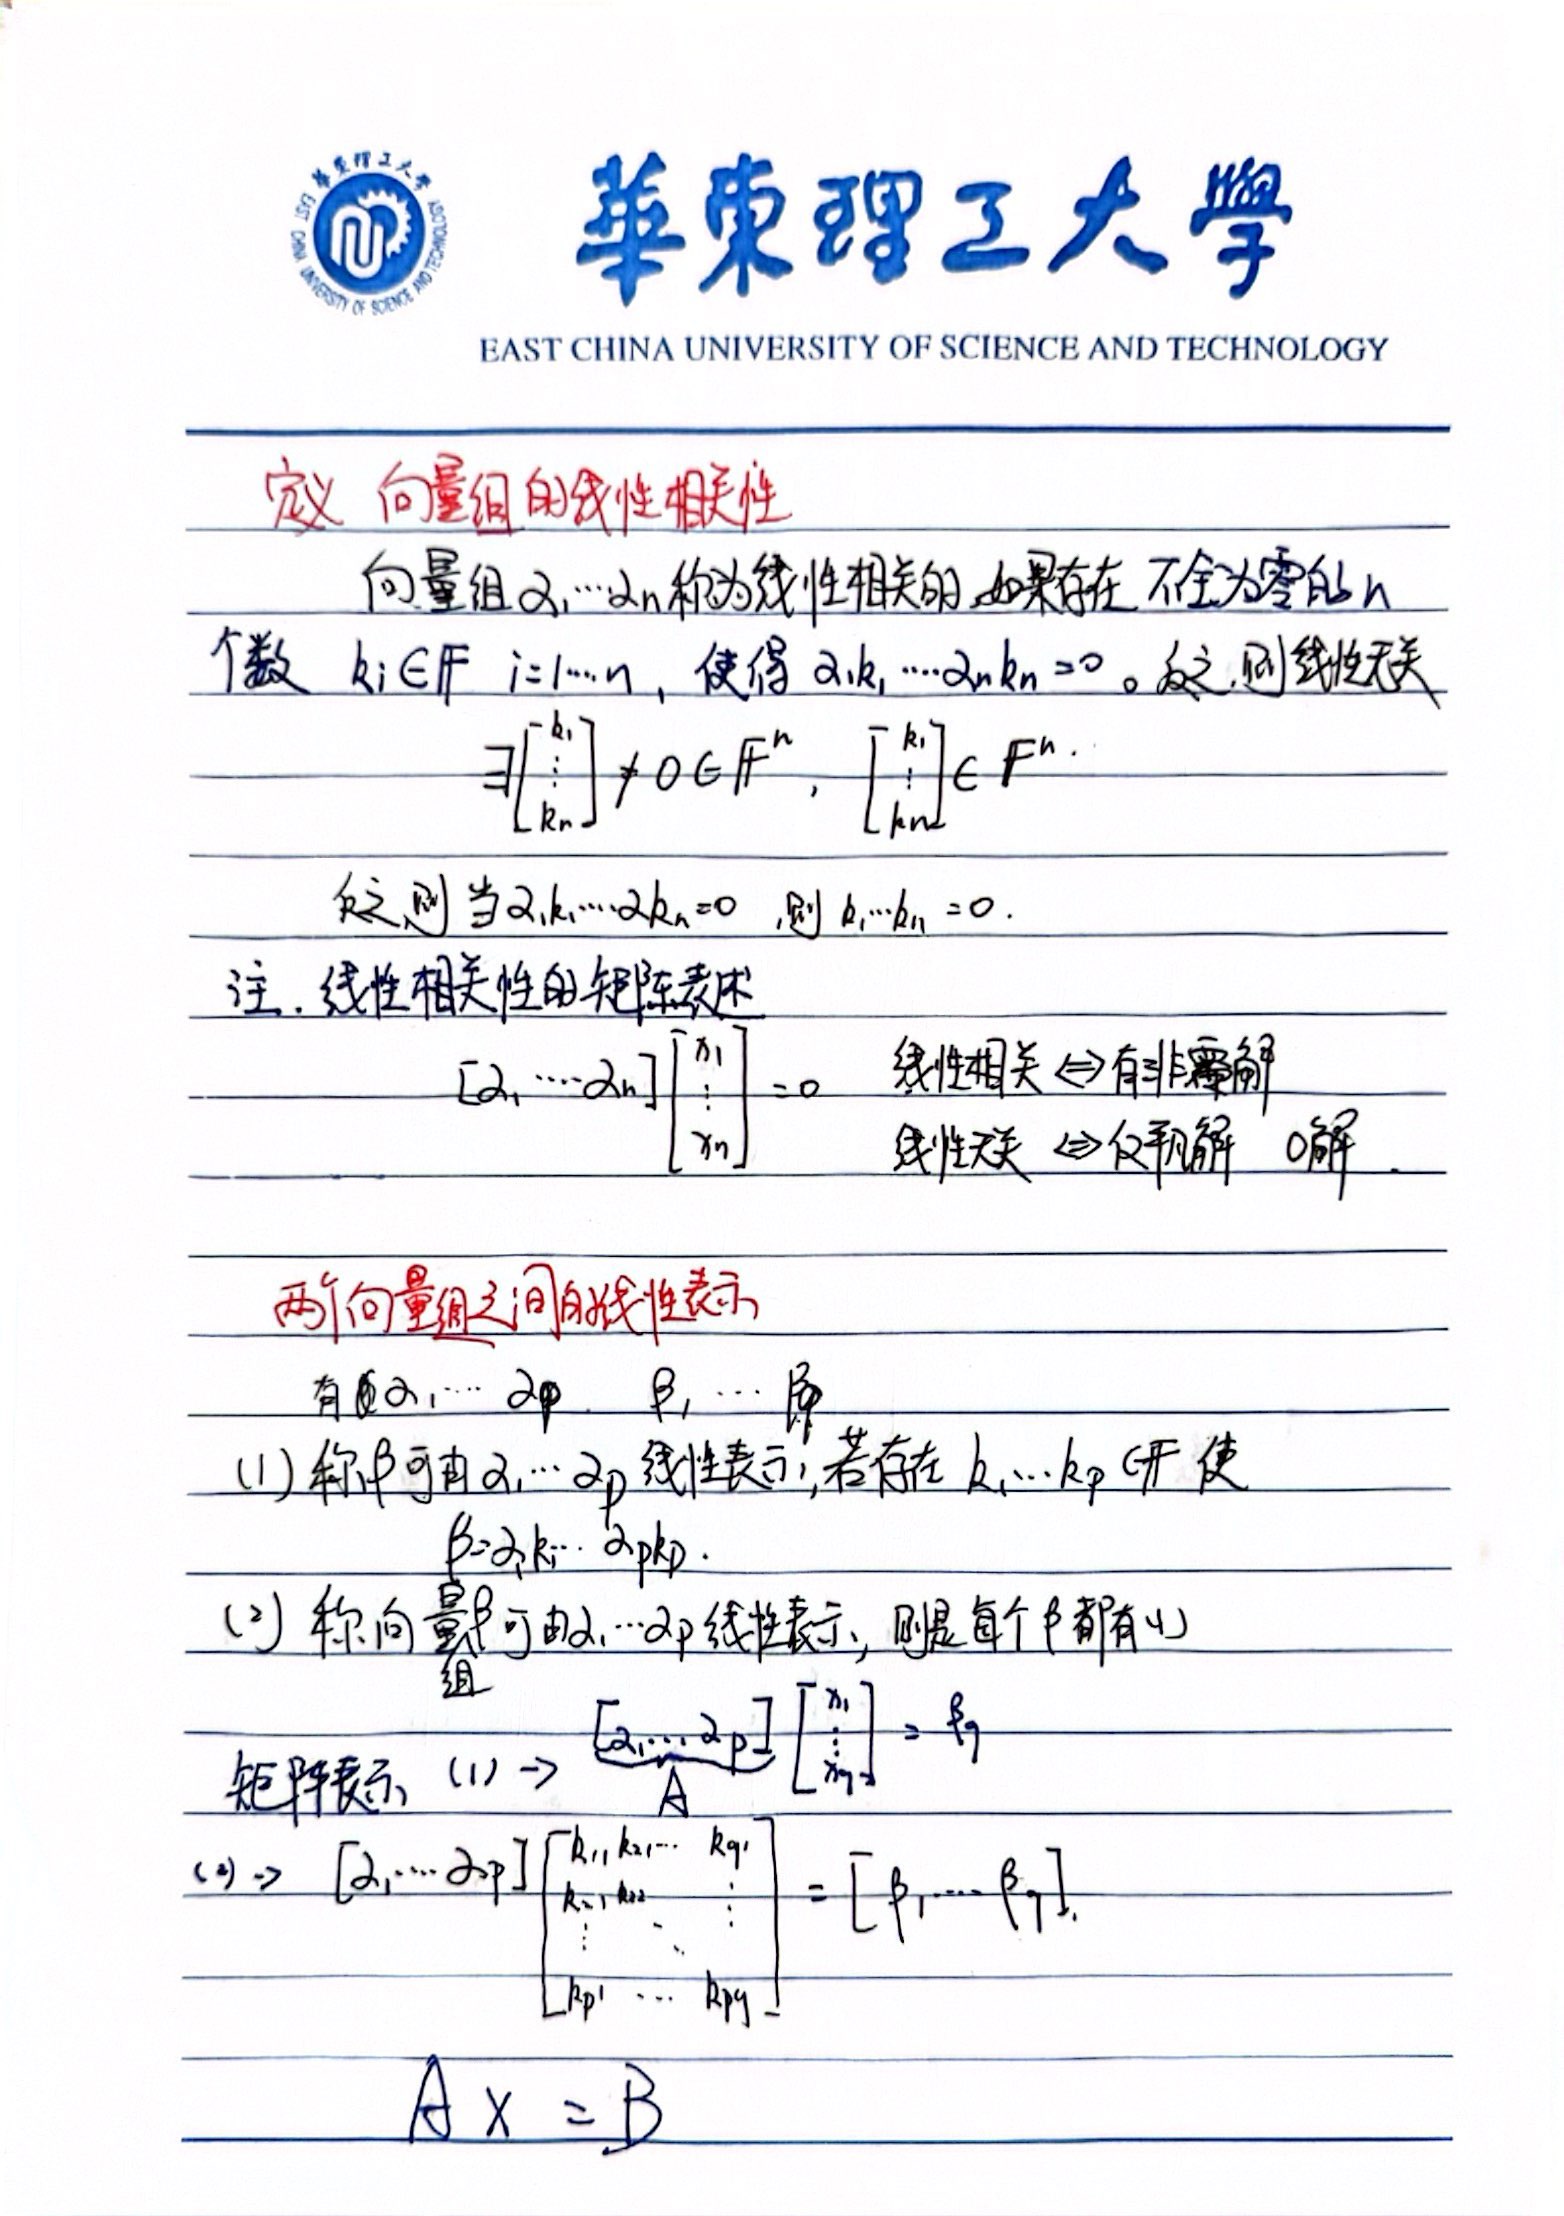 華東理工大學
EAST CHINA UNIVERSITY OF SCIENCE AND TECHNOLOGY
華東理工大學
EAST CHINA UNIVERSITY OF SCIENCE AND TECHNOLOGY
定义 向量组的线性相关性
向量组α₁…αn称为线性相关的,如果存在 不全为零的n
个数 ki∈F i=1…n, 使得 α₁k₁……αnkn=0。反之,则线性无关
∃[k₁ ⋮ kn] ≠ 0∈Fⁿ, [k₁ ⋮ kn]∈Fⁿ.
反之,则当α₁k₁……αkn=0,则 k₁…kn=0.
注. 线性相关性的矩阵表述
[α₁……αn][x₁ ⋮ xn]=0 线性相关⇔有非零解
线性无关⇔仅平凡解 0解.
两个向量组之间的线性表示
有α₁…αp. β₁…βp
(1) 称β可由α₁…αp线性表示,若存在 k₁…kp∈F 使
β=α₁k₁…αpkp.
(2) 称向量组β可由α₁…αp线性表示,则是每个β都有(1)
矩阵表示 (1)→ [α₁…αp][x₁ ⋮ xq] = βq
A
(2)→ [α₁……αp][k₁₁ k₂₁… kq₁
k₂₁ k₂₂ ⋮
⋮ ⋱ ⋮
kp₁ … kpq] = [β₁……βq].
A X = B